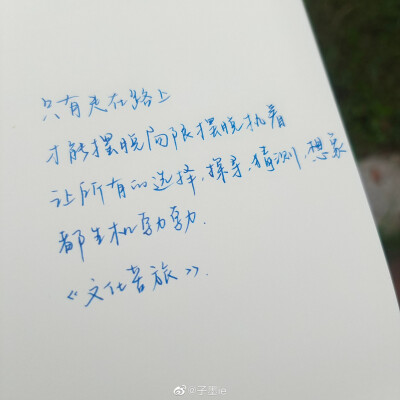 只有走在路上
才能摆脱局限摆脱执着
让所有的选择,探寻,猜测,想象
都生机勃勃.
《文化苦旅》.
@子墨ie